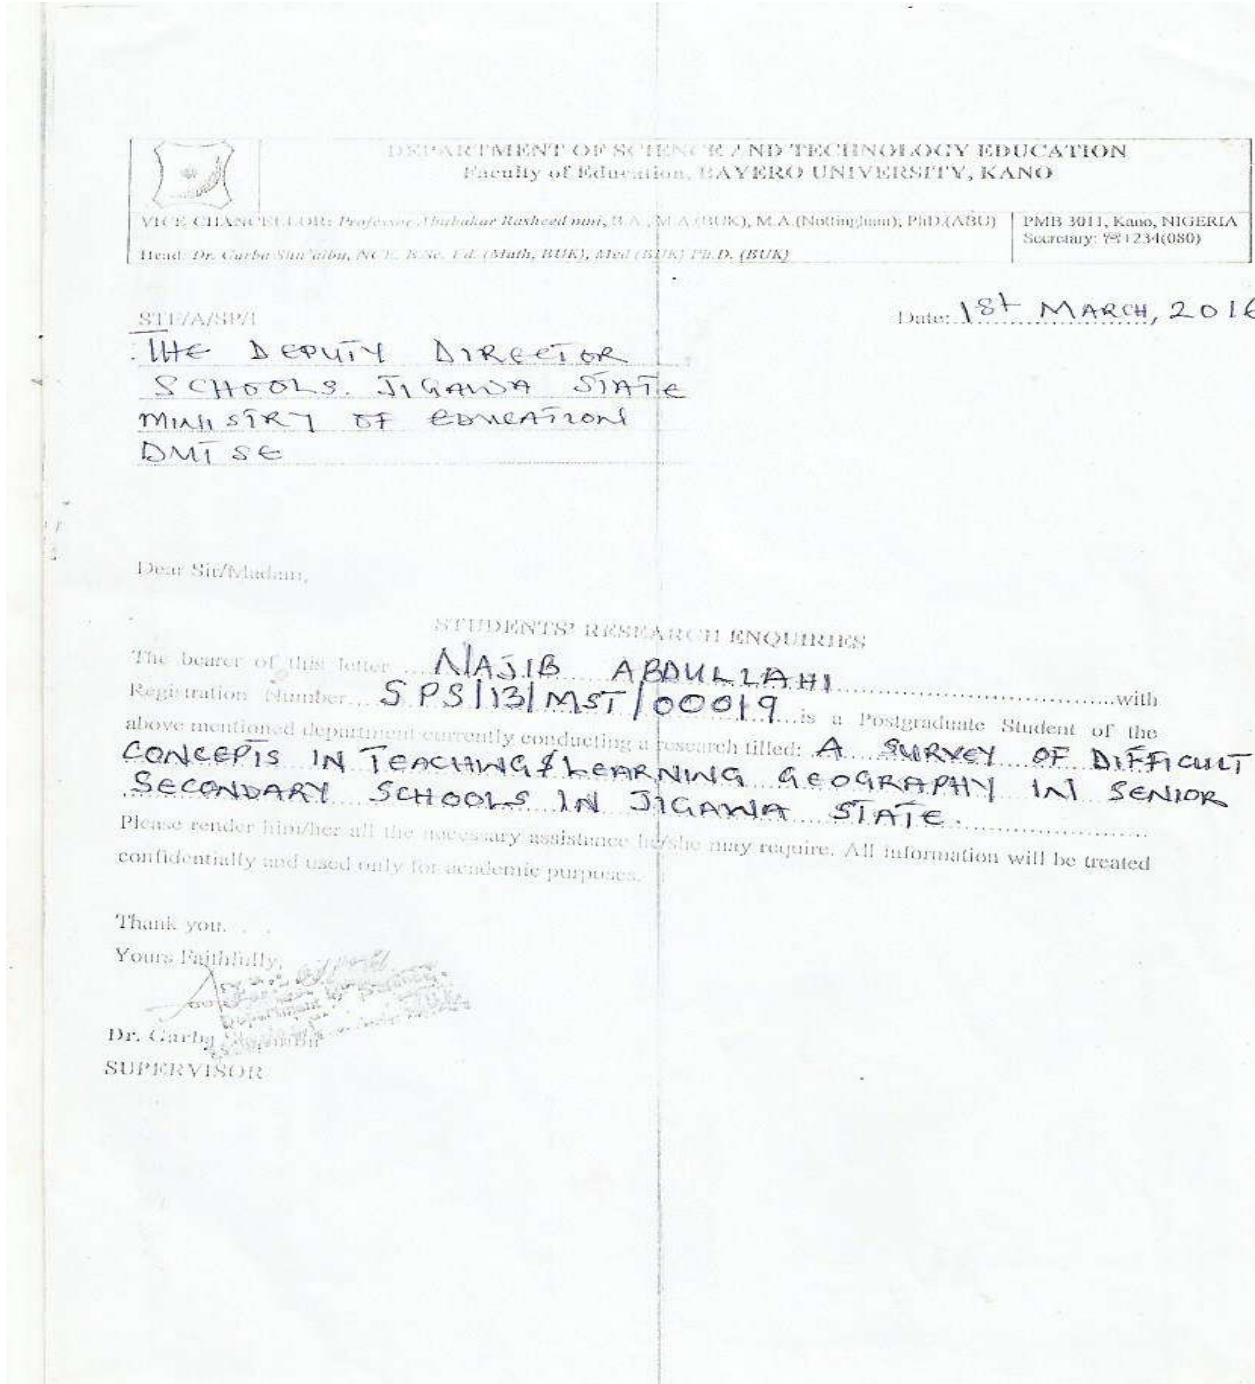 DEPARTMENT OF SCIENCE AND TECHNOLOGY EDUCATION
Faculty of Education, BAYERO UNIVERSITY, KANO
VICE CHANCELLOR: Professor Abubakar Rasheed mni, B.A., M.A (BUK), M.A.(Nottingham), PhD.(ABU)
PMB 3011, Kano, NIGERIA
Secretary: ☎+234(080)
Head: Dr. Garba Shu'aibu, NCE, B.Sc. Ed. (Math, BUK), Med (BUK) Ph.D. (BUK)
STE/A/SP/I
Date: 1st MARCH, 2016
THE DEPUTY DIRECTOR
SCHOOLS. JIGAWA STATE
MINISTRY OF EDUCATION
DUTSE
Dear Sir/Madam,
STUDENTS' RESEARCH ENQUIRIES
The bearer of this letter ... NAJIB ABDULLAHI ... with
Registration Number... SPS/13/MST/00019 ... is a Postgraduate Student of the
above mentioned department currently conducting a research titled: A SURVEY OF DIFFICULT
CONCEPTS IN TEACHING & LEARNING GEOGRAPHY IN SENIOR
SECONDARY SCHOOLS IN JIGAWA STATE.
Please render him/her all the necessary assistance he/she may require. All information will be treated
confidentially and used only for academic purposes.
Thank you.
Yours Faithfully,
Dr. Garba
SUPERVISOR